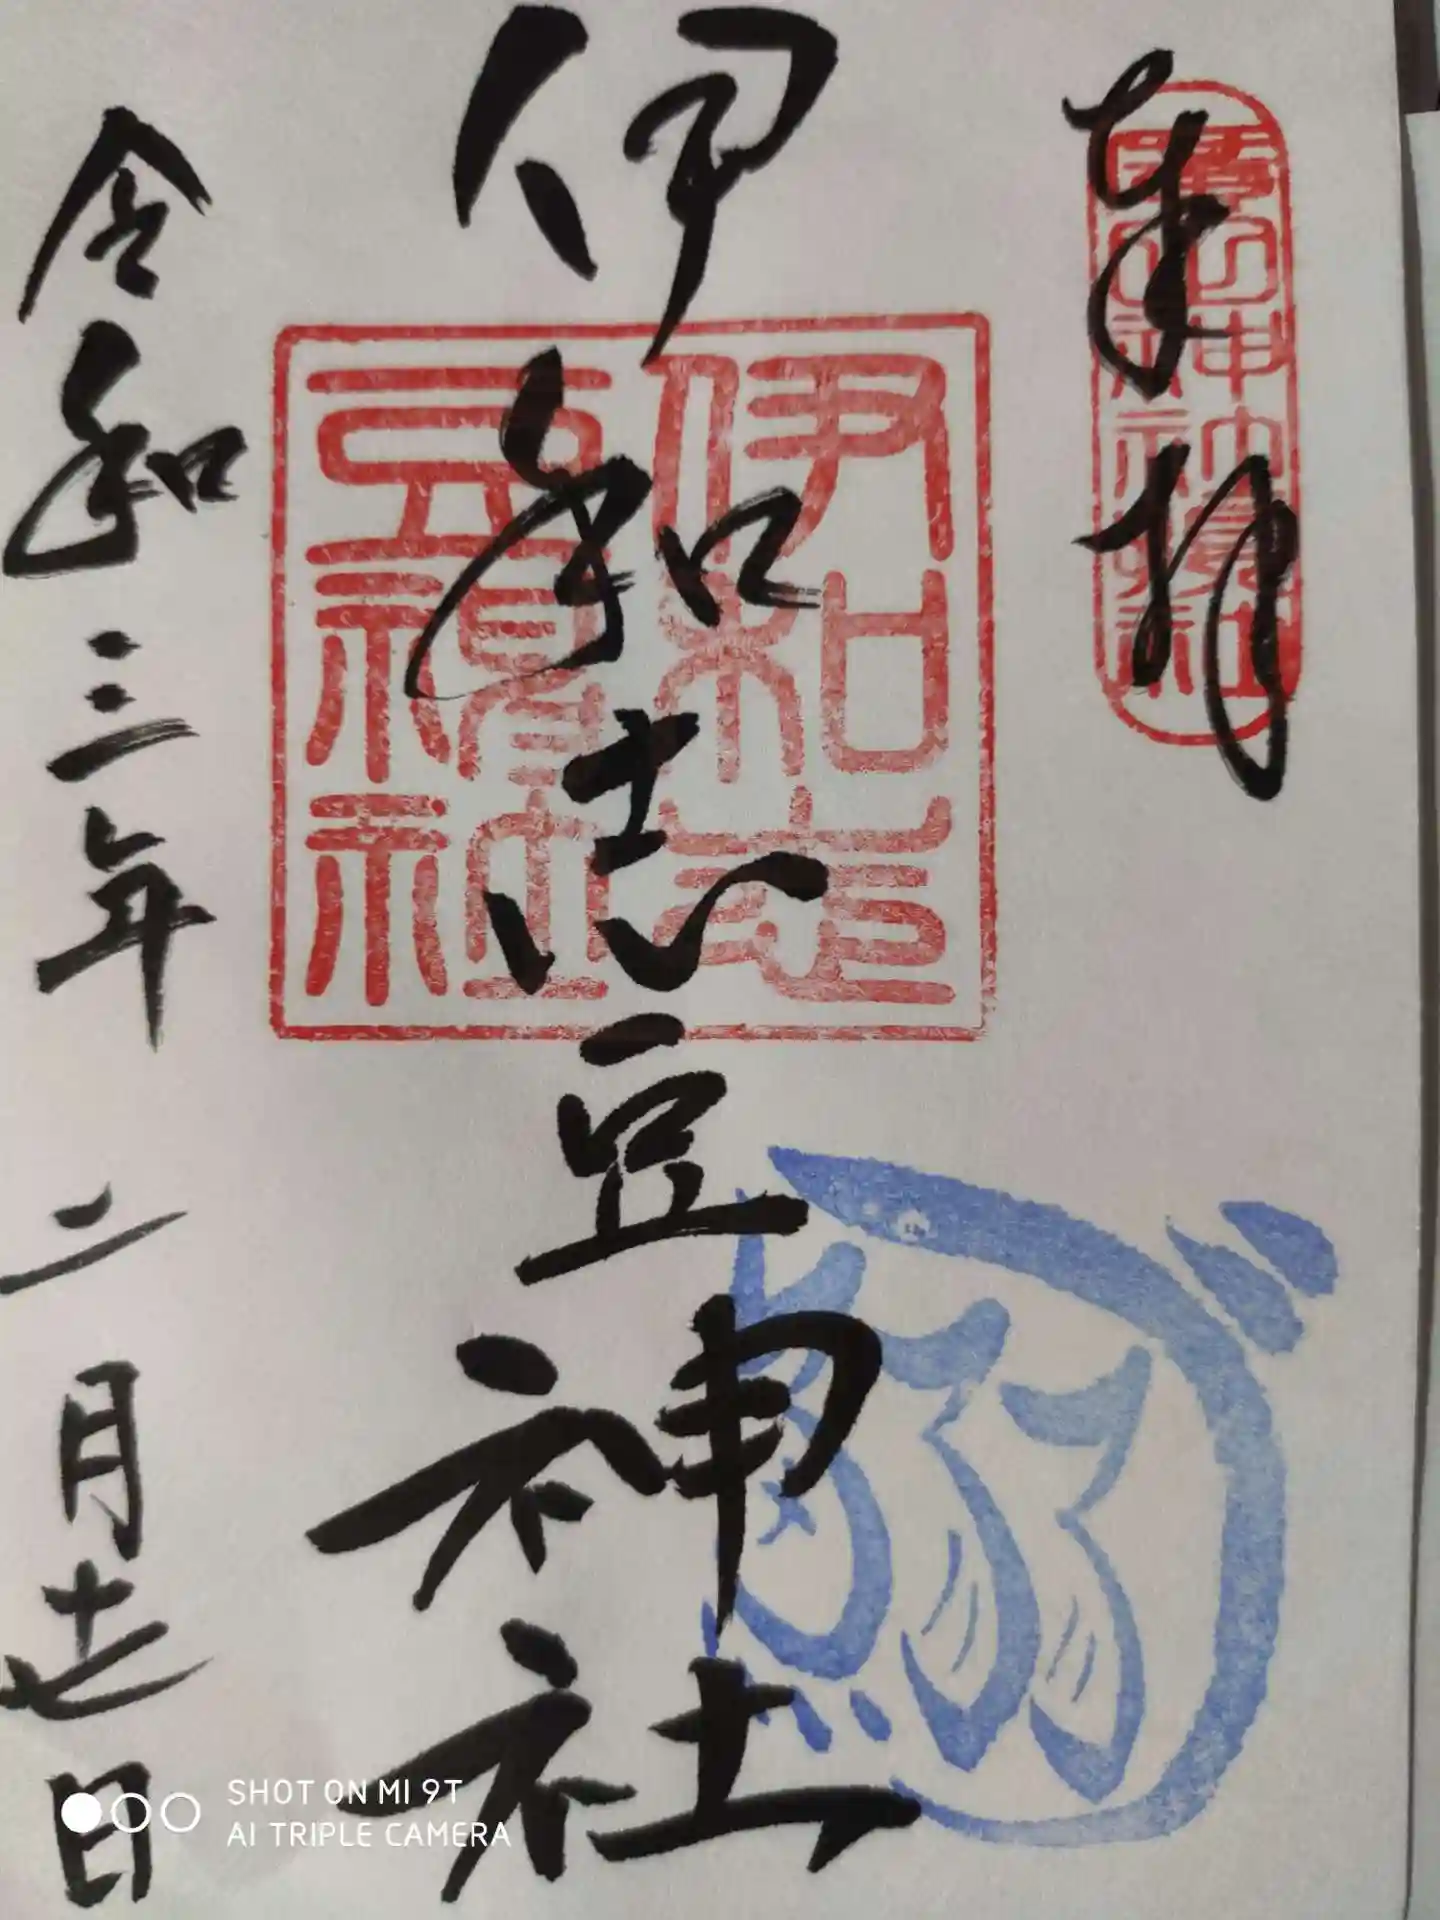 奉拝
伊和志豆神社
伊和志
豆神社
鰯
令和三年二月十七日
SHOT ON MI 9T
AI TRIPLE CAMERA